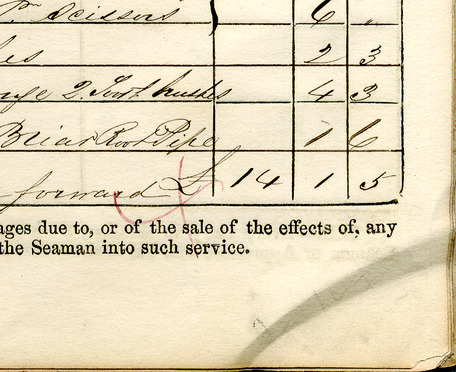 Pr Scissors } 6 "
es 2 3
2 Tooth brushes 4 3
Briar Root Pipe 1 6
forward £ 14 1 5
ages due to, or of the sale of the effects of, any
the Seaman into such service.